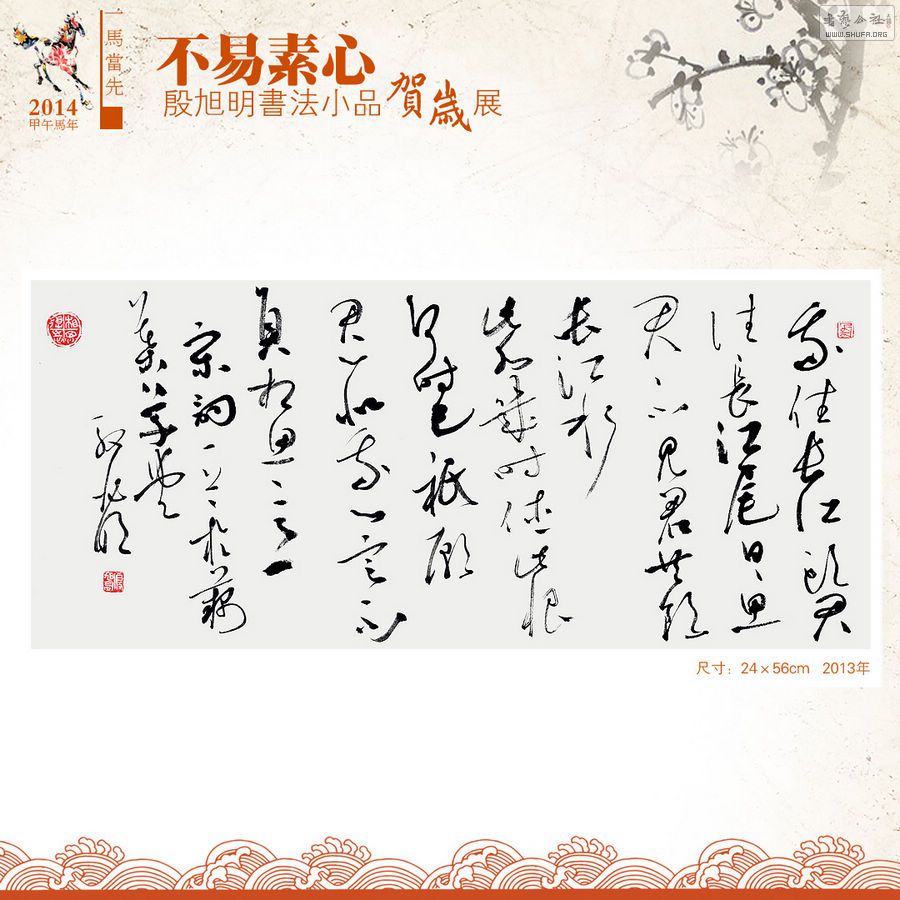 一馬當先
2014
甲午馬年
不易素心
殷旭明書法小品賀歲展
書藝公社
WWW.SHUFA.ORG
我住長江頭君
住長江尾日日思
君不見君共飲
長江水
此水幾時休此恨
何時已祇願
君心似我心定不
負相思意
宋詞一首於藕
草堂
殷旭明
尺寸：24×56cm 2013年